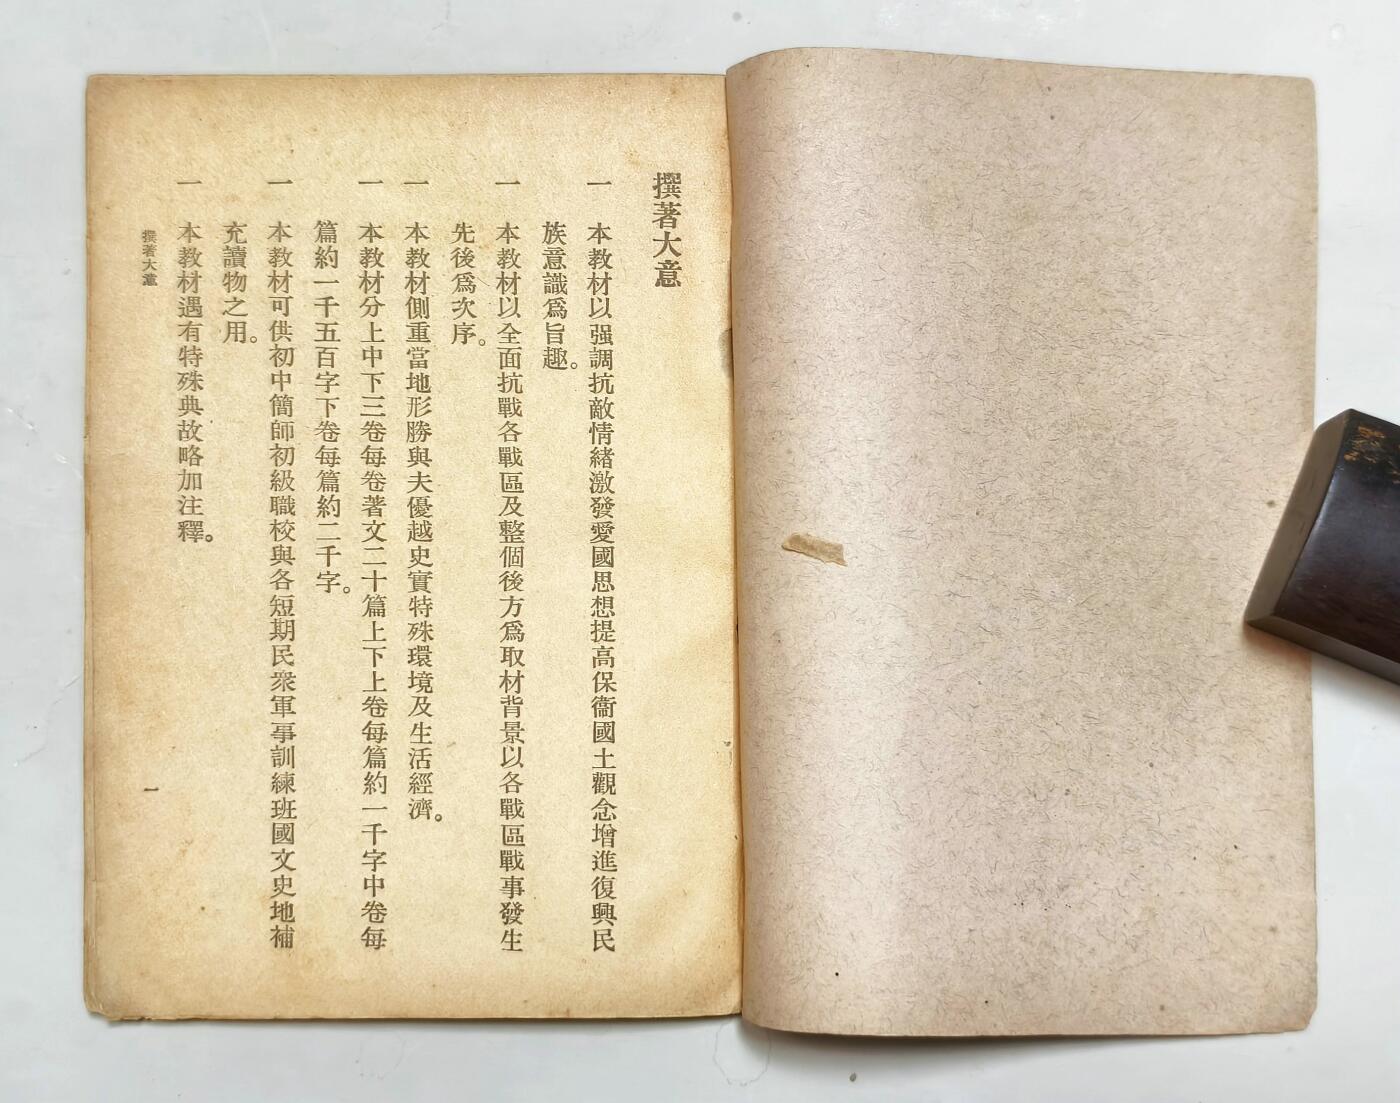 撰著大意
一　本教材以强調抗敵情緒激發愛國思想提高保衞國土觀念增進復興民
族意識爲旨趣。
一　本教材以全面抗戰各戰區及整個後方爲取材背景以各戰區戰事發生
先後爲次序。
一　本教材側重當地形勝與夫優越史實特殊環境及生活經濟。
一　本教材分上中下三卷每卷著文二十篇上下上卷每篇約一千字中卷每
篇約一千五百字下卷每篇約二千字。
一　本教材可供初中簡師初級職校與各短期民衆軍事訓練班國文史地補
充讀物之用。
一　本教材遇有特殊典故略加注釋。
撰著大意
一